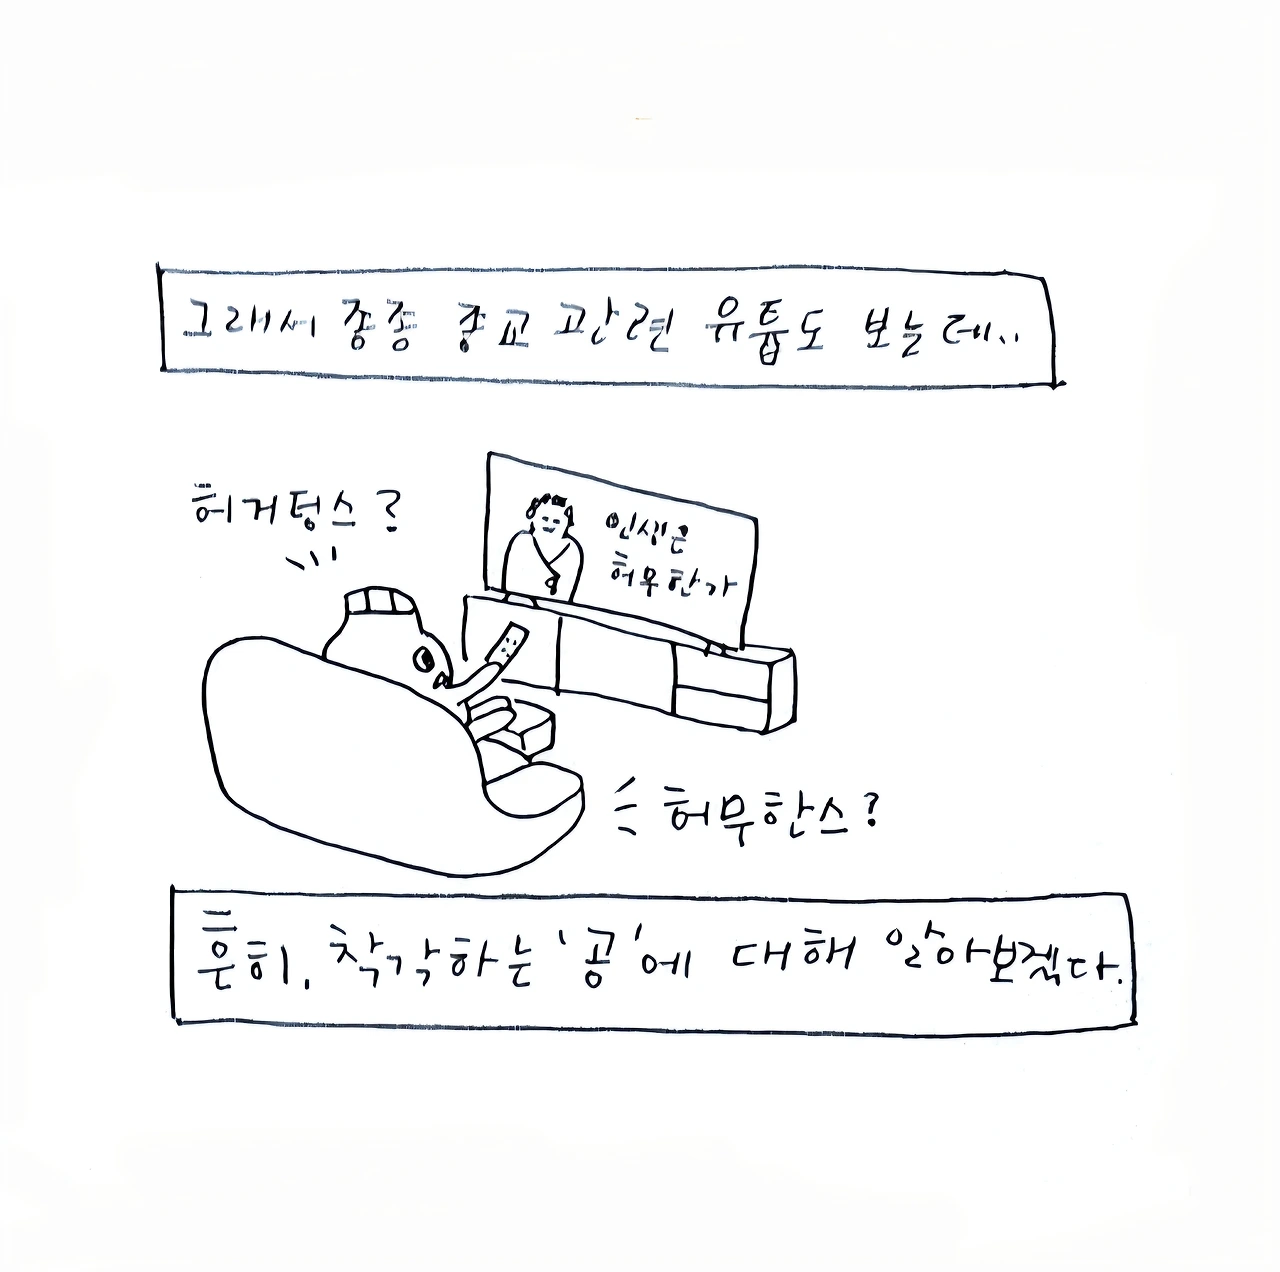 그래서 종종 종교 관련 유튭도 보는데..
허거텅스?
인생은
허무한가
허무한스?
흔히, 착각하는 '공'에 대해 알아보겠다.